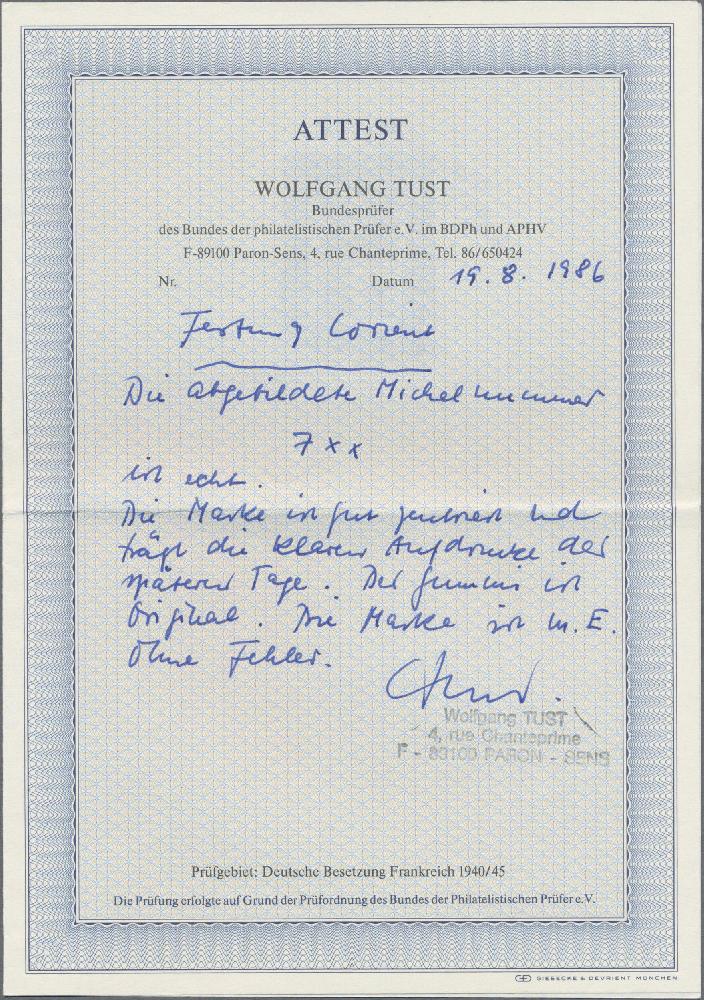 ATTEST
WOLFGANG TUST
Bundesprüfer
des Bundes der philatelistischen Prüfer e.V. im BDPh und APHV
F-89100 Paron-Sens, 4, rue Chanteprime, Tel. 86/650424
Nr. Datum 19.8.1986
Festung Lorient
Die abgebildete Michelnummer
7 x x
ist echt.
Die Marke ist gut zentriert und
trägt die klaren Aufdrucke der
späteren Tage. Der Gummi ist
Original. Die Marke ist m.E.
Ohne Fehler.
Wolfgang TUST
4, rue Chanteprime
F - 89100 PARON - SENS
Prüfgebiet: Deutsche Besetzung Frankreich 1940/45
Die Prüfung erfolgte auf Grund der Prüfordnung des Bundes der Philatelistischen Prüfer e.V.
GIESECKE & DEVRIENT MÜNCHEN